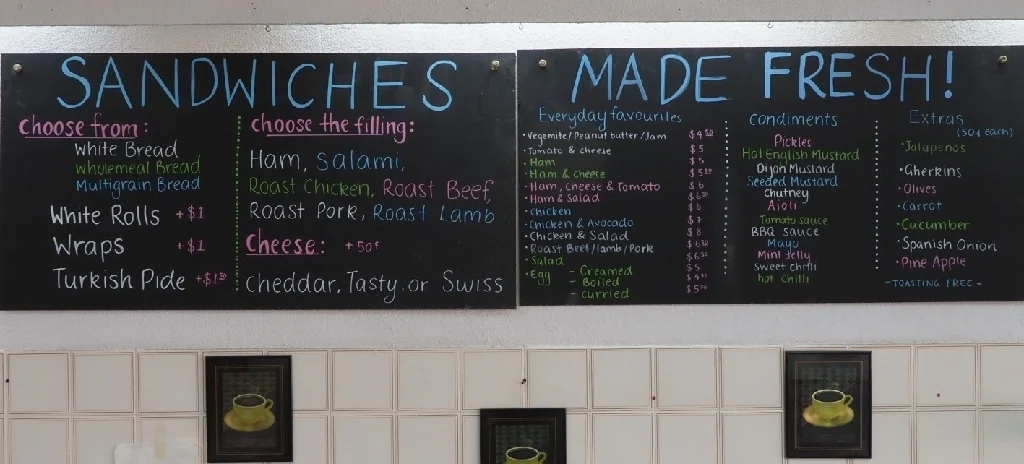 SANDWICHES
Choose from:
White Bread
Wholemeal Bread
Multigrain Bread
White Rolls +$1
Wraps +$1
Turkish Pide
choose the filling:
Ham, Salami,
Roast Chicken, Roast Beef,
Roast Pork, Roast Lamb
Cheese: +50¢
Cheddar, Tasty or Swiss
MADE FRESH!
Everyday favourites
Vegemite/Peanut butter/Jam $4
Tomato & cheese $5
Ham $5
Ham & cheese
Ham, Cheese & Tomato $6
Ham & Salad
Chicken
Chicken & Avocado $7
Chicken & Salad $8
Roast Beef/lamb/Pork
Salad
Egg - Creamed
- Boiled
- curried
Condiments
Pickles
Hot English Mustard
Dijon Mustard
Seeded Mustard
Chutney
Aioli
Tomato sauce
BBQ sauce
Mayo
Mint Jelly
sweet chilli
hot chilli
Extras
(50¢ each)
Jalapenos
Gherkins
Olives
Carrot
Cucumber
Spanish Onion
Pine Apple
- TOASTING FREE -